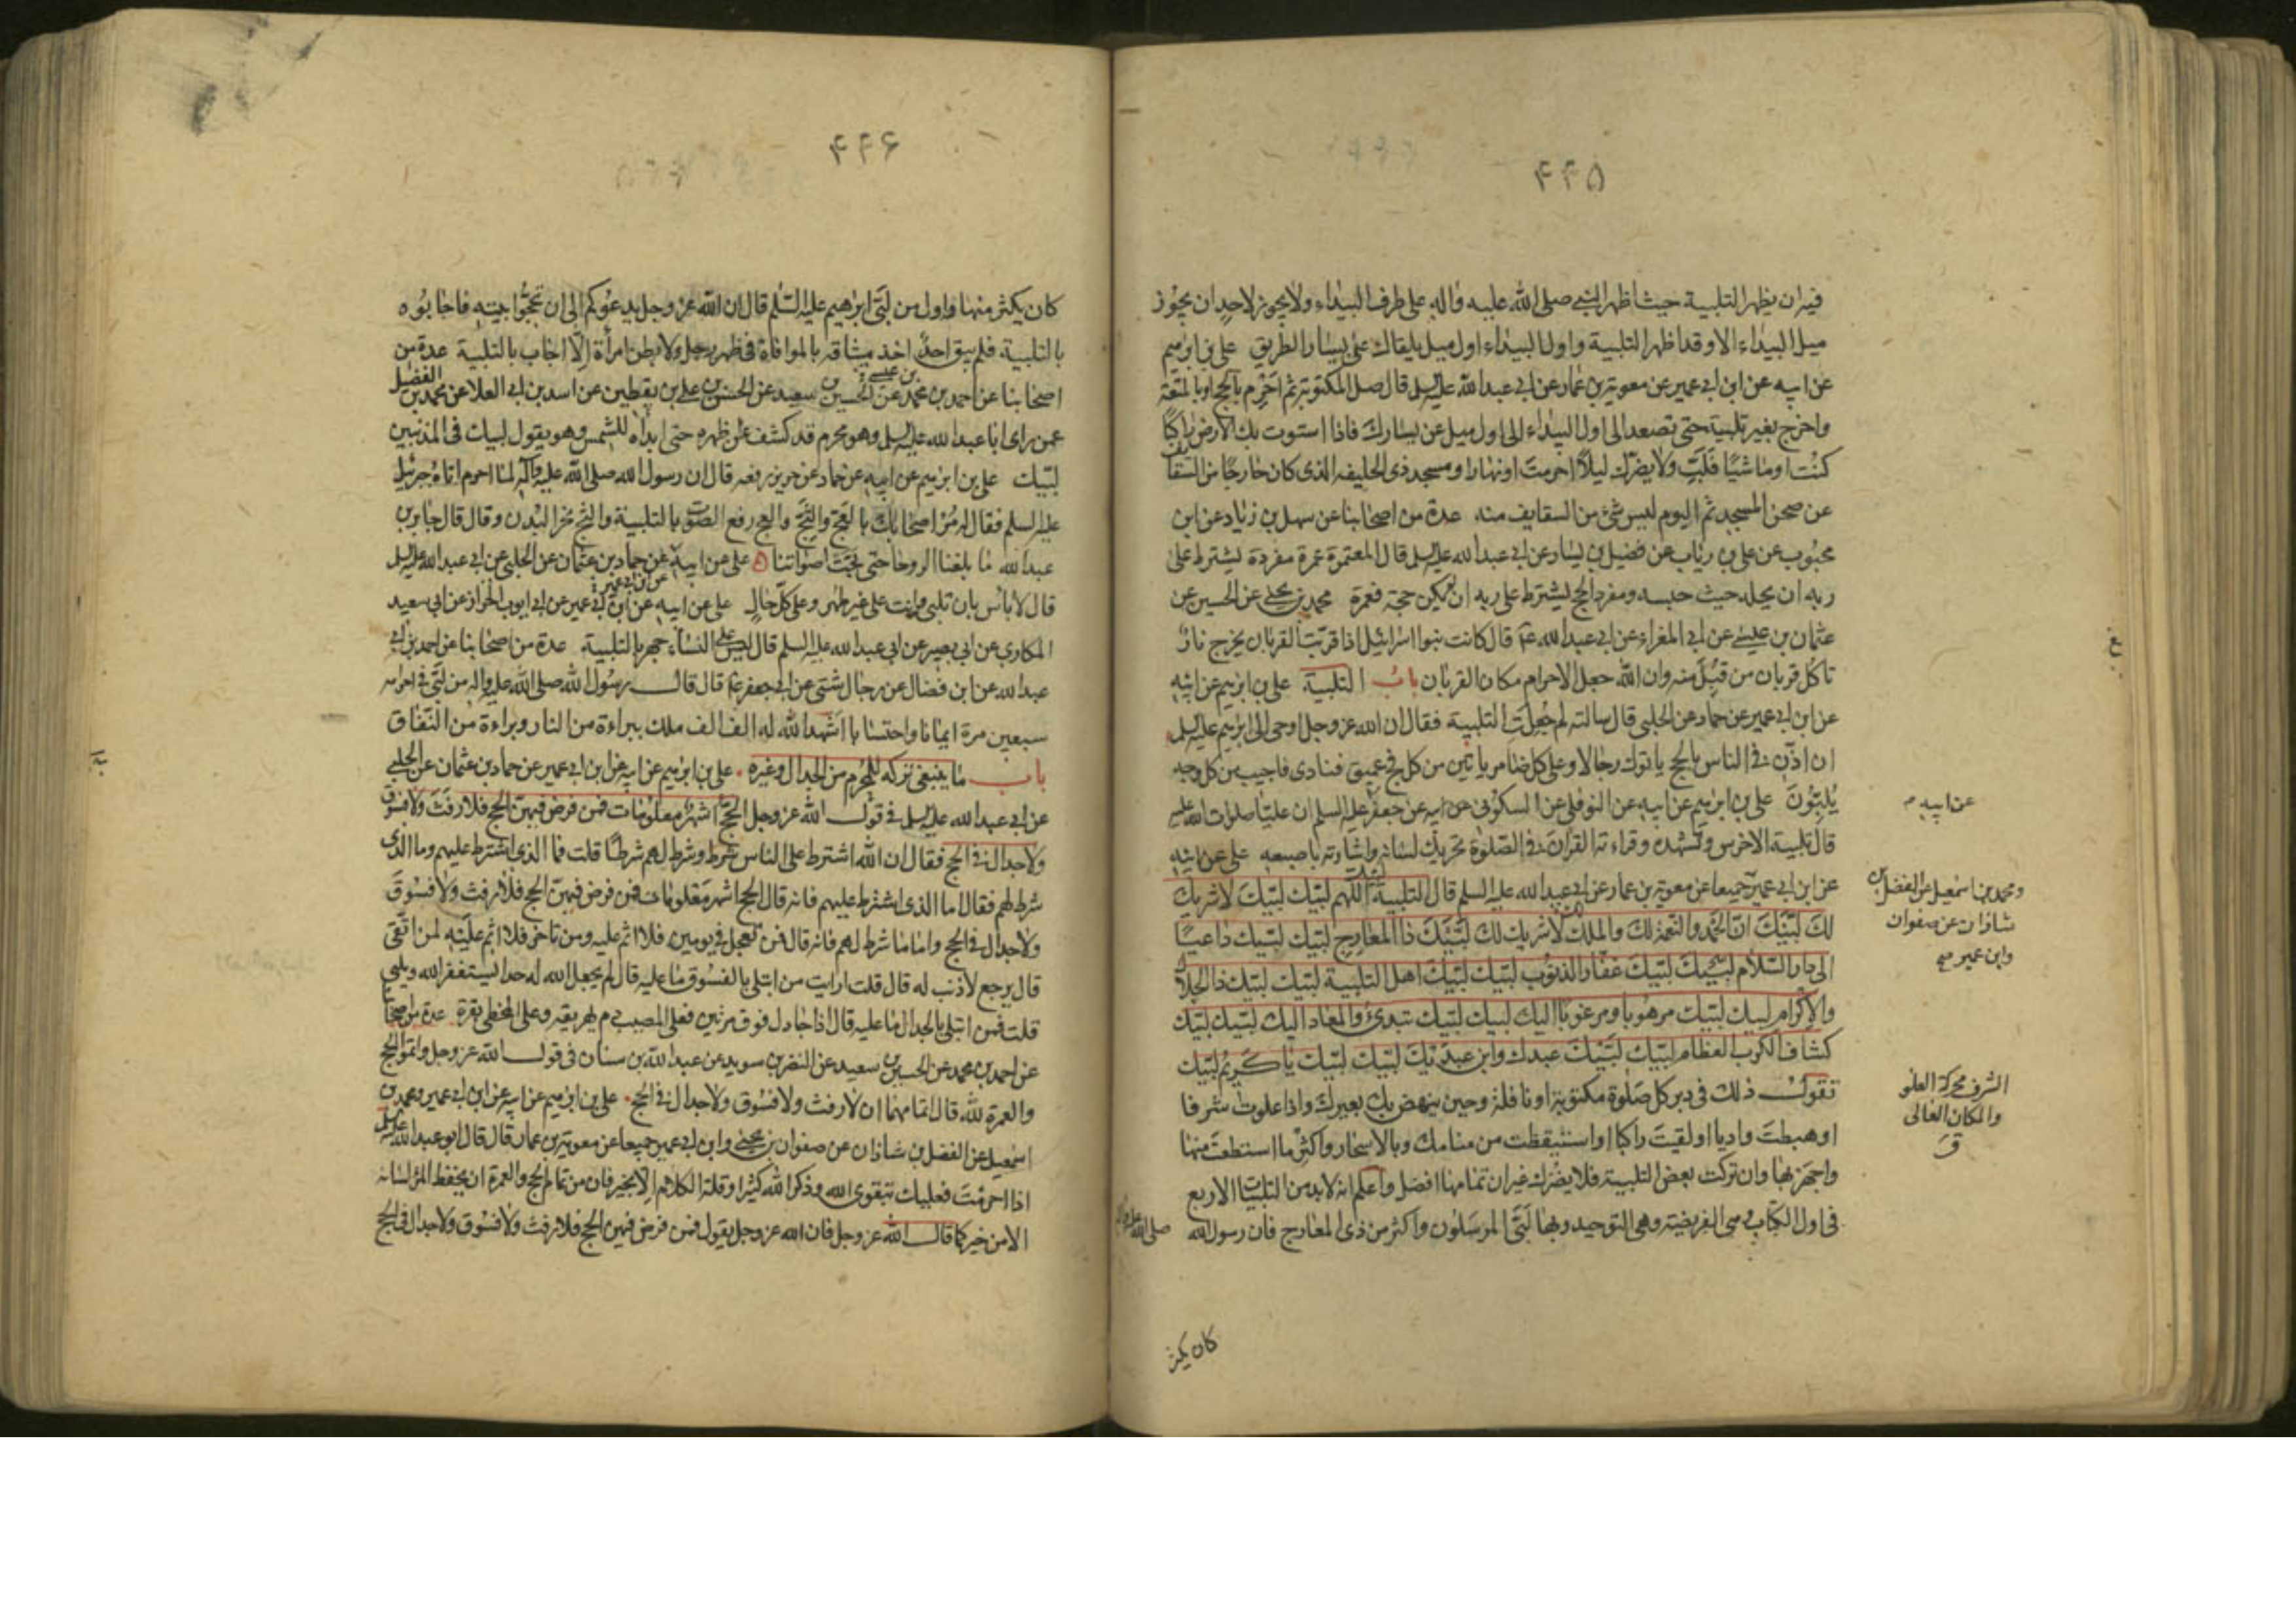 ۴۲۵
فيه ان يظهر التلبية حيث اظهر النبي صلى الله عليه واله على طرف البيداء ولا يجوز لاحد ان يجوز
ميل البيداء الا وقد اظهر التلبية واول البيداء اول ميل يلقاك على يسار الطريق علي بن ابرهيم
عن ابيه عن ابن ابي عمير عن معوية بن عمار عن ابي عبد الله عليه السلم قال صل المكتوبة ثم احرم بالحج او بالمتعة
واخرج بغير تلبية حتى تصعد الى اول البيداء الى اول ميل عن يسارك فاذا استوت بك الارض راكبا
كنت او ماشيا فلب ولا يضرك ليلا احرمت او نهارا ومسجد ذي الحليفه الذي كان خارجا من السقايف
عن صحن المسجد ثم اليوم ليس شئ من السقايف منه عدة من اصحابنا عن سهل بن زياد عن ابن
محبوب عن علي بن رياب عن فضيل بن يسار عن ابي عبد الله عليه السلم قال المعتمرة عمرة مفردة يشترط على
ربه ان يحله حيث حبسه ومفرد الحج يشترط على ربه ان لم يكن حجة فعمرة محمد بن يحيى عن الحسين عن
عثمان بن عيسى عن ابي المغراء عن ابي عبد الله ع قال كانت بنوا اسرائيل اذا قربت القربان يخرج نار
تاكل قربان من قبل منه وان الله جعل الاحرام مكان القربان باب التلبية علي بن ابرهيم عن ابيه
عن ابن ابي عمير عن حماد عن الحلبي قال سالته لم جعلت التلبية فقال ان الله عز وجل اوحى الى ابرهيم عليه السلم
ان اذن في الناس بالحج ياتوك رجالا وعلى كل ضامر ياتين من كل فج عميق فنادى فاجيب من كل وجه
يلبون علي بن ابرهيم عن ابيه عن النوفلي عن السكوني عن جعفر عليه السلم ان عليا صلوات الله عليه
قال تلبية الاخرس وتشهده وقراءته القران في الصلوة تحريك لسانه واشارته باصبعه علي عن ابيه
عن ابن ابي عمير جميعا عن معوية بن عمار عن ابي عبد الله عليه السلم قال التلبية لبيك اللهم لبيك لبيك لا شريك
لك لبيك ان الحمد والنعمة لك والملك لا شريك لك لبيك ذا المعارج لبيك لبيك داعيا
الى دار السلام لبيك لبيك غفار الذنوب لبيك لبيك اهل التلبية لبيك لبيك ذا الجلال
والاكرام لبيك لبيك مرهوبا ومرغوبا اليك لبيك لبيك تبدئ والمعاد اليك لبيك لبيك
كشاف الكرب العظام لبيك لبيك عبدك وابن عبديك لبيك لبيك يا كريم لبيك
تقول ذلك في دبر كل صلوة مكتوبة او نافلة وحين ينهض بك بعيرك واذا علوت شرفا
او هبطت واديا او لقيت راكبا او استيقظت من منامك وبالاسحار واكثر ما استطعت منها
واجهر بها وان تركت بعض التلبية فلا يضرك غير ان تمامها افضل واعلم انه لابد من التلبيات الاربع
في اول الكتاب وهي الفريضة وهي التوحيد وبها لبى المرسلون واكثر من ذي المعارج فان رسول الله صلى الله عليه واله
كان يكثر
عن ابيه
ومحمد بن اسمعيل عن الفضل بن
شاذان عن صفوان
وابن عمير
الشرف محركة العلو
والمكان العالي
ق
۴۲۶
كان يكثر منها واول من لبى ابرهيم عليه السلم قال ان الله عز وجل يدعوكم الى ان تحجوا بيته فاجابوه
بالتلبية فلم يبق احد اخذ ميثاقه بالموافاة في ظهر رجل ولا بطن امرأة الا اجاب بالتلبية عدة من
اصحابنا عن احمد بن محمد بن عيسى عن الحسين بن سعيد عن الحسن بن علي بن يقطين عن اسد بن ابي العلا عن محمد بن الفضيل
عمن راى ابا عبد الله عليه السلم وهو محرم قد كشف عن ظهره حتى ابداه للشمس وهو يقول لبيك في المذنبين
لبيك علي بن ابرهيم عن ابيه عن حماد عن حريز رفعه قال ان رسول الله صلى الله عليه واله لما احرم اتاه جبرئيل
عليه السلم فقال له مر اصحابك بالعج والثج والعج رفع الصوت بالتلبية والثج نحر البدن وقال قال جابر بن
عبد الله ما بلغنا الروحا حتى بحت اصواتنا علي عن ابيه عن ابن ابي عمير عن حماد بن عثمان عن الحلبي عن ابي عبد الله عليه السلم
قال لا باس بان تلبي وانت على غير طهر وعلى كل حال علي عن ابيه عن ابن ابي عمير عن ابي ايوب الخزاز عن ابي سعيد
المكاري عن ابي بصير عن ابي عبد الله عليه السلم قال ليس على النساء جهر بالتلبية عدة من اصحابنا عن احمد بن ابي
عبد الله عن ابن فضال عن رجال شتى عن ابي جعفر ع قال قال رسول الله صلى الله عليه واله من لبى في احرامه
سبعين مرة ايمانا واحتسابا اشهد الله له الف الف ملك ببراءة من النار وبراءة من النفاق
باب ما ينبغي تركه للمحرم من الجدال وغيره علي بن ابرهيم عن ابيه عن ابن ابي عمير عن حماد بن عثمان عن الحلبي
عن ابي عبد الله عليه السلم في قول الله عز وجل الحج اشهر معلومات فمن فرض فيهن الحج فلا رفث ولا فسوق
ولا جدال في الحج فقال ان الله اشترط على الناس شرط وشرط لهم شرطا قلت فما الذي اشترط عليهم وما الذي
شرط لهم فقال اما الذي اشترط عليهم فانه قال الحج اشهر معلومات فمن فرض فيهن الحج فلا رفث ولا فسوق
ولا جدال في الحج واما ما شرط لهم فانه قال فمن تعجل في يومين فلا اثم عليه ومن تاخر فلا اثم عليه لمن اتقى
قال يرجع لا ذنب له قال قلت ارايت من ابتلي بالفسوق ما عليه قال لم يجعل الله له حدا يستغفر الله ويلبي
قلت فمن ابتلي بالجدال ما عليه قال اذا جادل فوق مرتين فعلى المصيب دم يهريقه وعلى المخطي بقرة عدة من اصحابنا
عن احمد بن محمد عن الحسين بن سعيد عن النضر بن سويد عن عبد الله بن سنان في قول الله عز وجل واتموا الحج
والعمرة لله قال اتمامهما ان لا رفث ولا فسوق ولا جدال في الحج علي بن ابرهيم عن ابيه عن ابن ابي عمير ومحمد بن
اسمعيل عن الفضل بن شاذان عن صفوان بن يحيى وابن ابي عمير جميعا عن معوية بن عمار قال قال ابو عبد الله عليه السلم
اذا احرمت فعليك بتقوى الله وذكر الله كثيرا وقلة الكلام الا بخير فان من تمام الحج والعمرة ان يحفظ المرء لسانه
الا من خير كما قال الله عز وجل فان الله عز وجل يقول فمن فرض فيهن الحج فلا رفث ولا فسوق ولا جدال في الحج